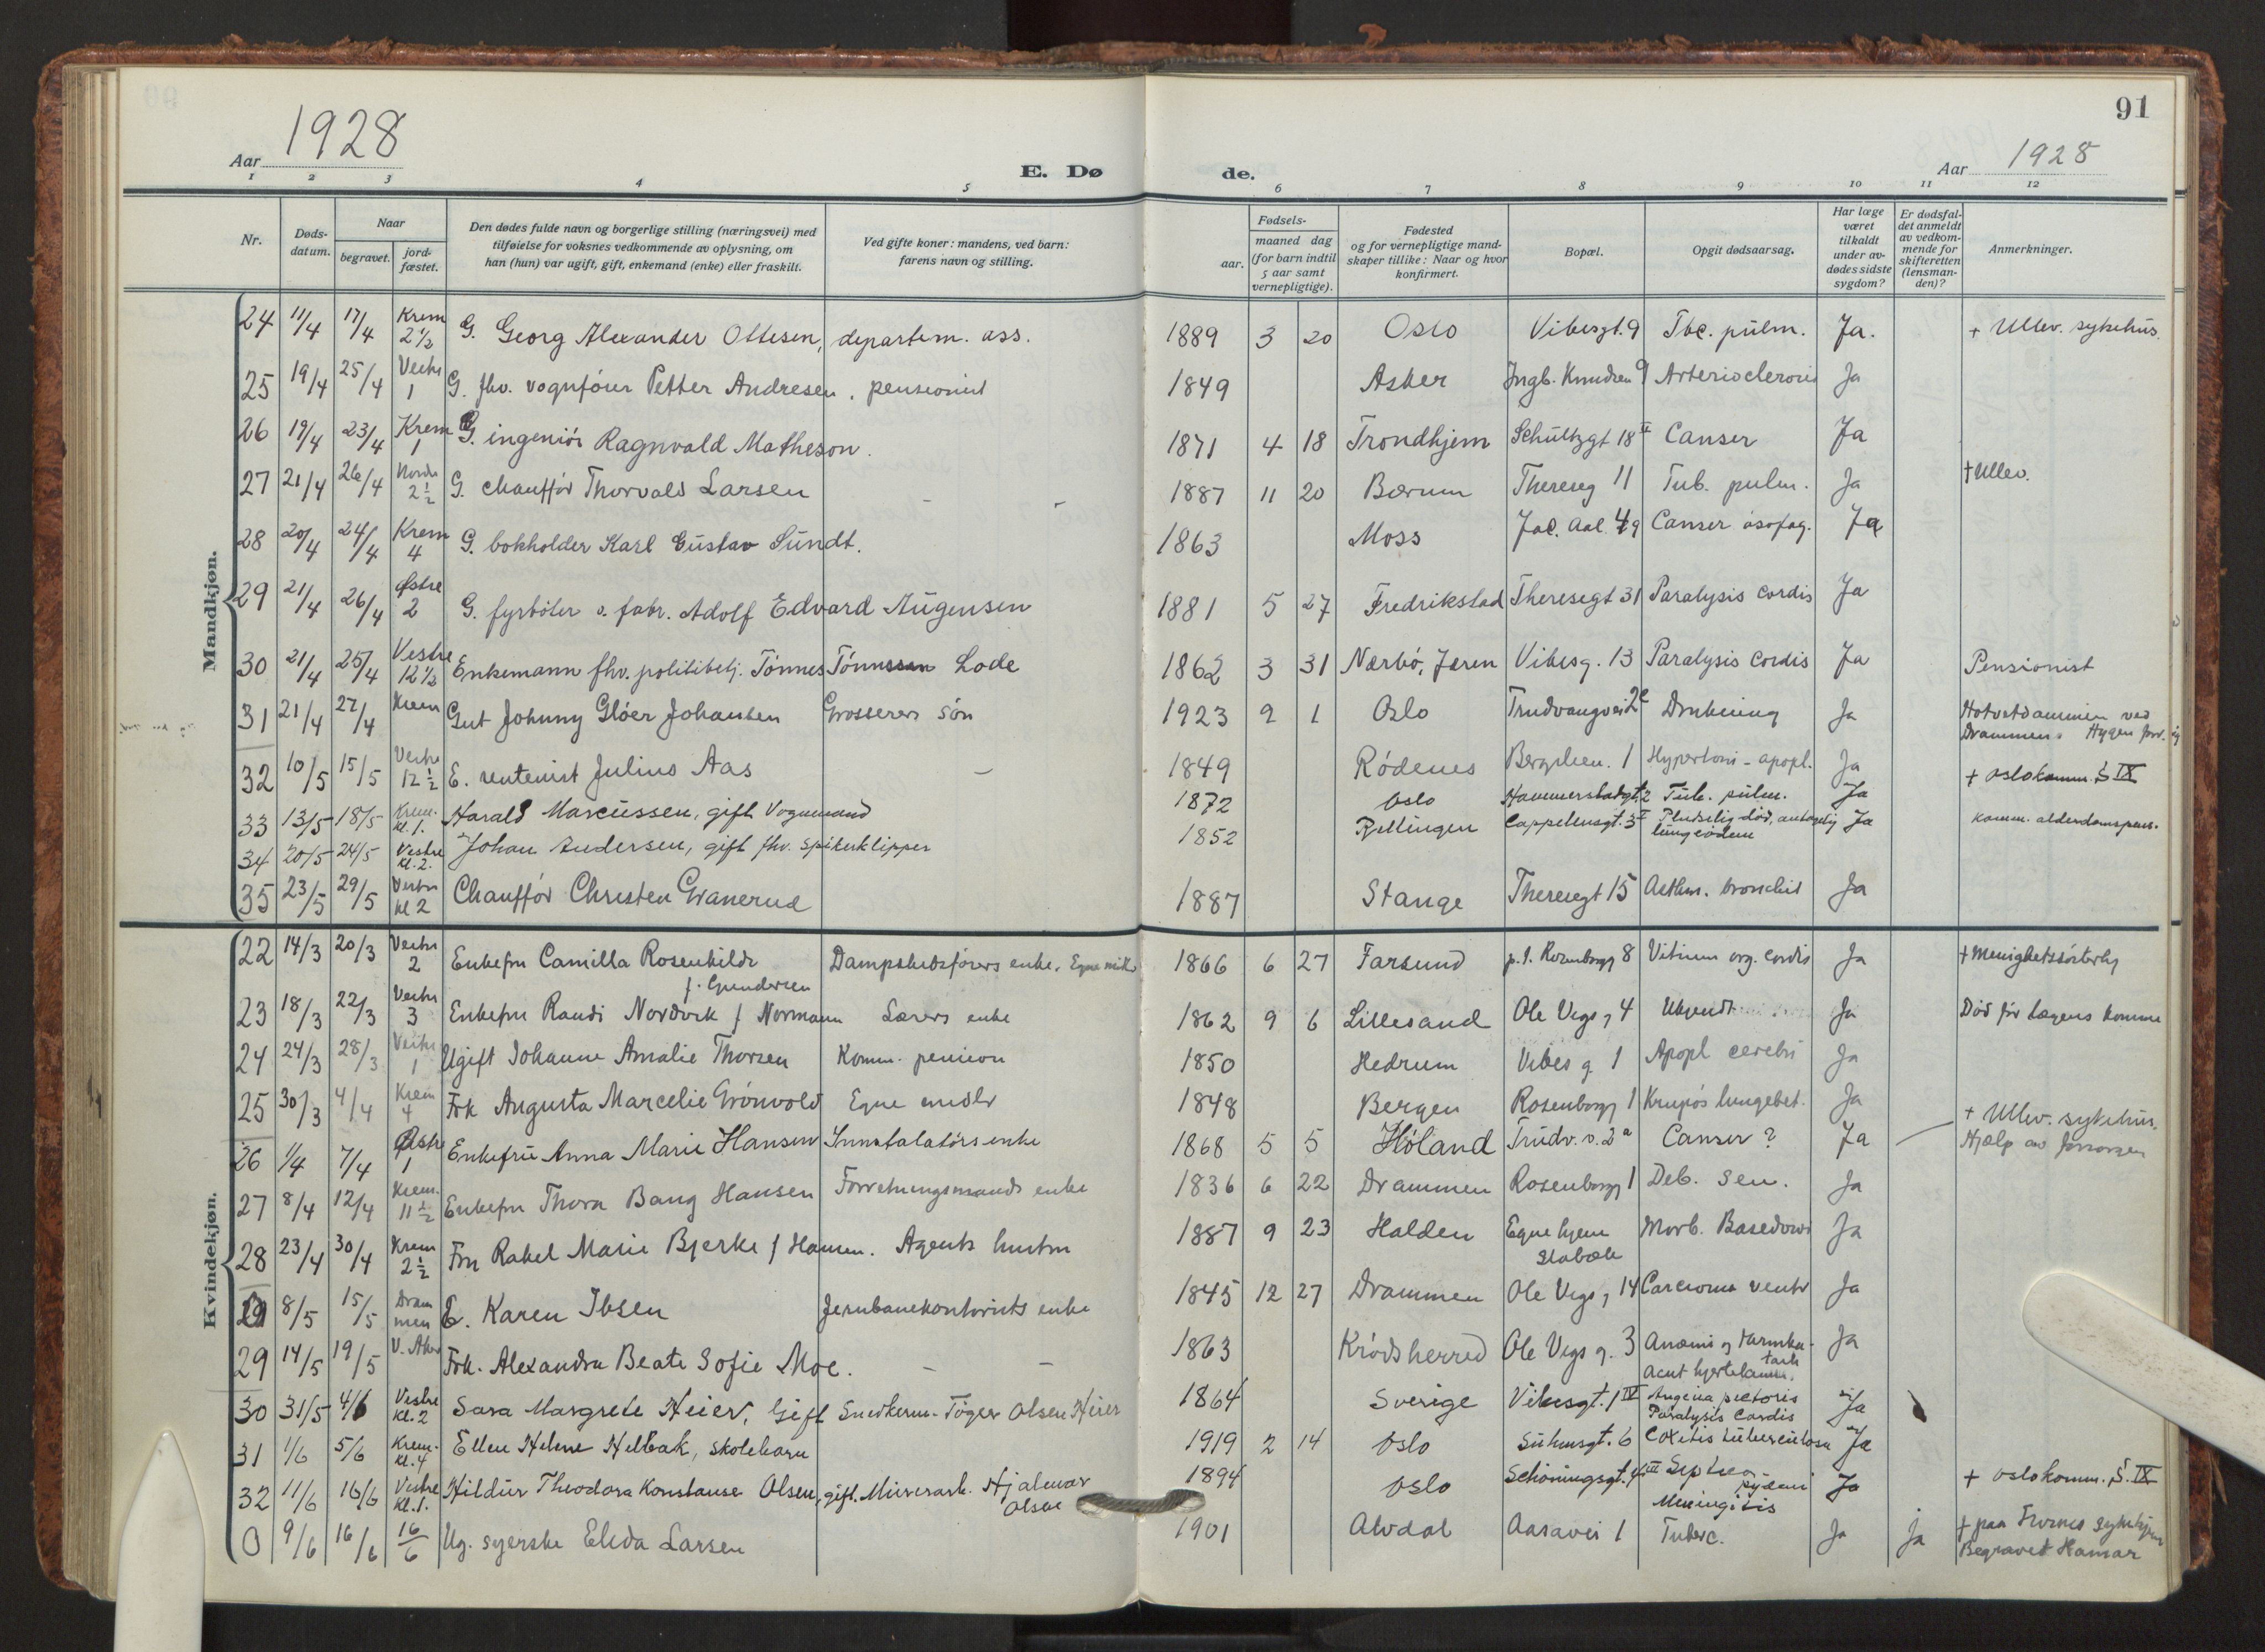 91
Aar 1928
E. Dø
de.
Aar 1928
1 2 3 4 5 6 7 8 9 10 11 12
Nr.
Døds-datum.
Naar
begravet.
jord-fæstet.
Den dødes fulde navn og borgerlige stilling (næringsvei) med
tilføielse for voksnes vedkommende av oplysning, om
han (hun) var ugift, gift, enkemand (enke) eller fraskilt.
Ved gifte koner: mandens, ved barn:
farens navn og stilling.
Fødsels-
aar.
maaned dag
(for barn indtil
5 aar samt
vernepligtige).
Fødested
og for vernepligtige mand-
skaper tillike: Naar og hvor
konfirmert.
Bopæl.
Opgit dødsaarsag.
Har læge
været
tilkaldt
under av-
dødes sidste
sygdom?
Er dødsfal-
det anmeldt
av vedkom-
mende for
skifteretten
(lensman-
den)?
Anmerkninger.
Mandkjøn.
24 11/4 17/4 Krem 2 1/2 G. Georg Alexander Ottesen, departem. ass. 1889 3 20 Oslo Vibesgt. 9 Tbc. pulm. Ja. + Ullev. sykehus.
25 19/4 25/4 Vestre 1 G. fhv. vognfører Petter Andresen, pensionist 1849 Asker Ingb. Knudsen 9 Arteriosclerosis Ja
26 19/4 23/4 Krem 1 G. ingeniør Ragnvald Matheson. 1871 4 18 Trondhjem Schultzgt 18 II Canser Ja
27 21/4 26/4 Nordre 2 1/2 G. chauffør Thorvald Larsen - - 1887 11 20 Bærum Thereseg 11 Tub. pulm. Ja + Ullev.
28 20/4 24/4 Krem 4 G. bokholder Karl Gustav Sundt. 1863 Moss Jac. Aal 49 Canser øsofag. Ja
29 21/4 26/4 Østre 2 G. fyrbøter v. fabr. Adolf Edvard Augensen 1881 5 27 Fredrikstad Theresegt 31 Paralysis cordis Ja
30 21/4 25/4 Vestre 12 1/2 Enkemann fhv. politibetj. Tønnes Tønnessen Lode 1862 3 31 Nærbø, Jæren Vibesg. 13 Paralysis cordis Ja Pensionist
31 21/4 27/4 Krem Gut Johnny Gløer Johansen Grosserer søn 1923 9 1 Oslo Trudvangvei 2c Drukning Ja Hotvetdammen ved
Drammen.
32 10/5 15/5 Vestre 12 1/2 E. rentenist Julius Aas - 1849 Rødenes Bergslien. 1 Hypertoni - apopl. Ja + Oslo komm. S IX
33 13/5 18/5 Krem. kl. 1. Harald Marcussen, gift Vognmand 1872 Oslo Hammerstadgt. 2 Tub. pulm. Ja
34 20/5 24/5 Vestre kl. 2. Johan Andersen, gift fhv. spikerklipper 1852 Rellingen Cappelensgt. 3 I Pludselig død, antagelig lungeødem Ja komm. alderdomspens.
35 23/5 29/5 Vestre kl 2 Chauffør Christen Granerud 1887 Stange Theresegt 15 Asthm. bronchit Ja
Kvindekjøn.
22 14/3 20/3 Vestre 2 Enkefru Camilla Rosenkilde
f. Gundersen Dampskibsførers enke. Egne midler 1866 6 27 Farsund p.t. Rosenborgg 8 Vitium org. cordis Ja + Menighetssøsterhj
23 18/3 22/3 Vestre 3 Enkefru Randi Nordvik f Normann Lærers enke 1862 9 6 Lillesand Ole Vigs g 4 Ukjendt Ja Død før lægens komme
24 24/3 28/3 Vestre 1 Ugift Johanne Amalie Thorsen Komm. pension 1850 Hedrum Vibes g. 1 Apopl cerebri Ja
25 30/3 4/4 Krem 4 Frk Augusta Marcelie Grønvold Egne midler 1848 Bergen Rosenborgg 1 Krupøs lungebet. Ja
26 1/4 7/4 Østre 1 Enkefru Anna Marie Hansen Innstalatørs enke 1868 5 5 Høland Trudv. v. 2a Canser? Ja + Ullev. sykehus.
Hjælp av forsorgen
27 8/4 12/4 Krem. 11 1/2 Enkefru Thora Bang Hansen Forretningsmands enke 1836 6 22 Drammen Rosenborgg 1 Deb. sen. Ja
28 23/4 30/4 Krem 2 1/2 Fru Rakel Marie Bjerke f Hansen. Agents hustru 1887 9 23 Halden Egne hjem Stabæk Morb. Basedowi Ja
8/5 15/5 Drammen E. Karen Ibsen Jernbanekontorists enke 1845 12 27 Drammen Ole Vigs g 14 Carcioma ventr Ja
29 14/5 19/5 V. Aker Frk. Alexandra Beate Sofie Moe. - - 1863 Krødsherred Ole Vigs g. 3 Anæmi og tarmkatarh
Acut hjertelamm. Ja
30 31/5 4/6 Vestre kl. 2 Sara Margrete Heier, Gift Snedkerm. Tøger Olsen Heier 1864 Sverige Vibesgt. 1 IV Angina pectoris
Paralysis cordis Ja
31 1/6 5/6 Krem. kl. 4 Ellen Helene Helbak, skolebarn 1919 2 14 Oslo Suhmsgt. 6 Coxitis tuberculosa Ja
32 11/6 16/6 Vestre kl. 1. Hildur Theodora Konstanse Olsen, gift. Murerarb. Hjalmar Olsen 1894 Oslo Schøningsgt. 4 III
Meningitis Ja + Oslo komm. S. IX
0 9/6 16/6 16/6 Ug. syerske Elida Larsen 1901 Alvdal Aasavei 1 Tuberc. Ja Ja + paa Furnes sykehjem
Begravet Hamar